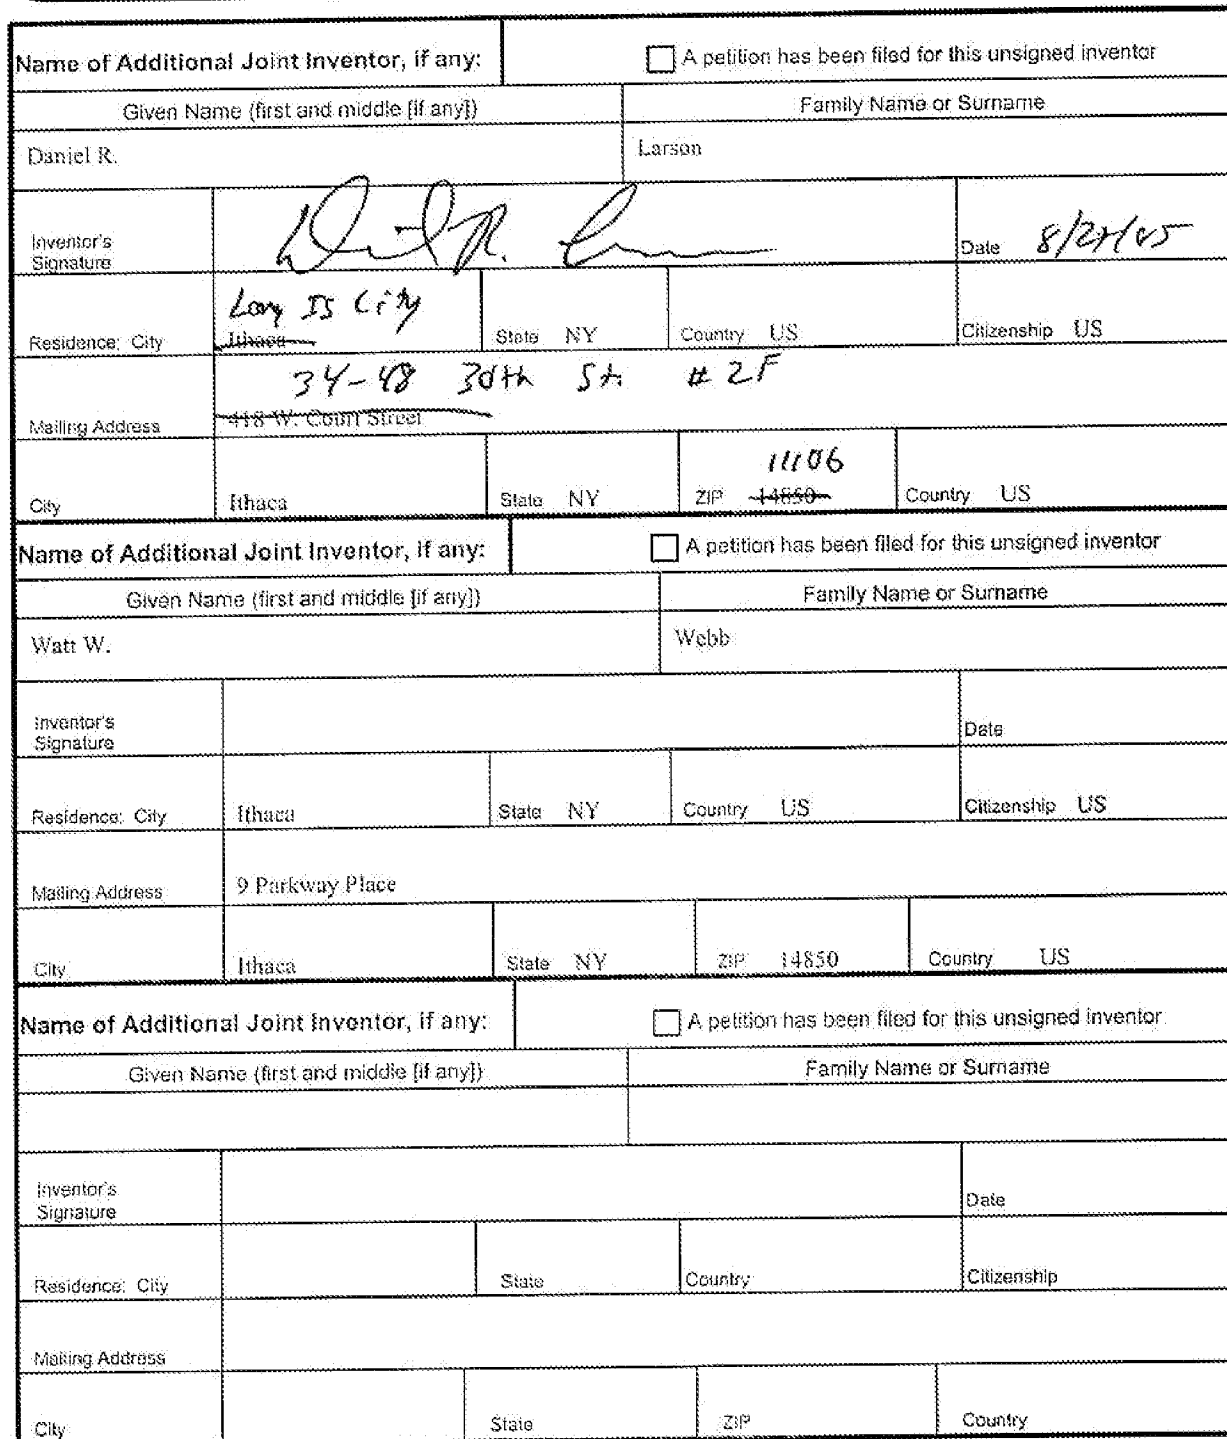 Name of Additional Joint Inventor, if any: A petition has been filed for this unsigned inventor
Given Name (first and middle [if any]) Family Name or Surname
Daniel R. Larson
Inventor's Signature Date
Long Is City
Residence: City Ithaca State NY Country US Citizenship US
34-48 30th St. # 2F
Mailing Address 418 W. Court Street
11106
City Ithaca State NY ZIP 14850 Country US
Name of Additional Joint Inventor, if any: A petition has been filed for this unsigned inventor
Given Name (first and middle [if any]) Family Name or Surname
Watt W. Webb
Inventor's Signature Date
Residence: City Ithaca State NY Country US Citizenship US
Mailing Address 9 Parkway Place
City Ithaca State NY ZIP 14850 Country US
Name of Additional Joint Inventor, if any: A petition has been filed for this unsigned inventor
Given Name (first and middle [if any]) Family Name or Surname
Inventor's Signature Date
Residence: City State Country Citizenship
Mailing Address
City State ZIP Country